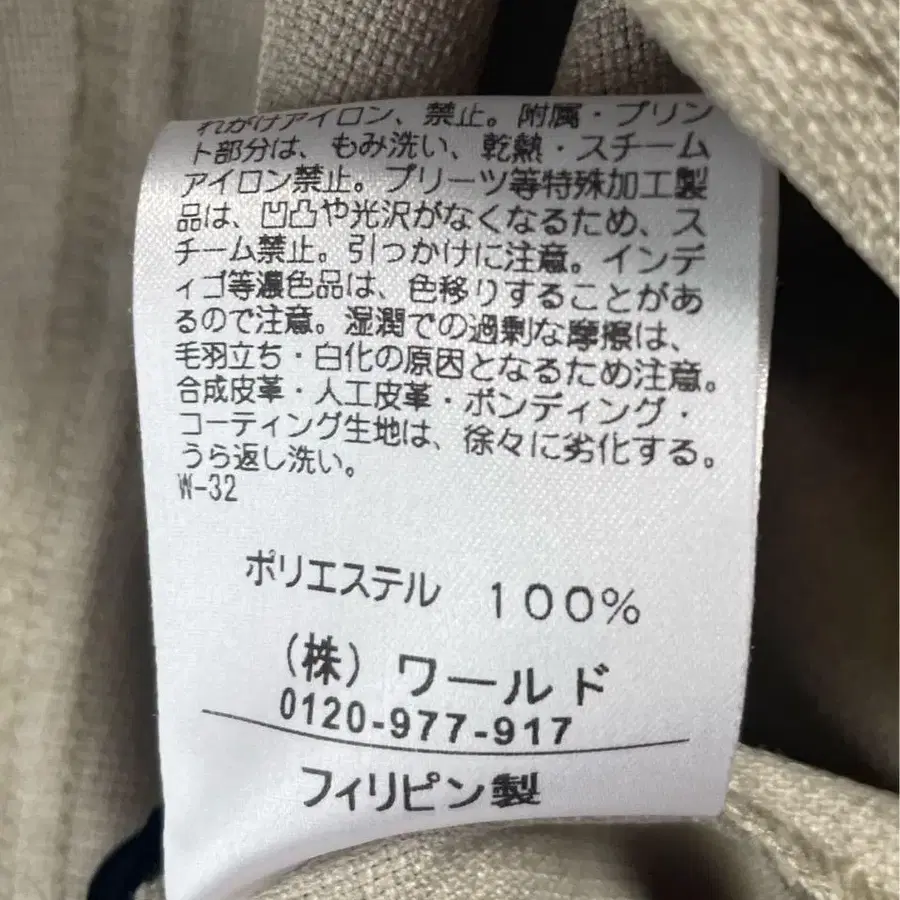 れがけアイロン、禁止。附属・プリン
ト部分は、もみ洗い、乾熱・スチーム
アイロン禁止。プリーツ等特殊加工製
品は、凹凸や光沢がなくなるため、ス
チーム禁止。引っかけに注意。インデ
ィゴ等濃色品は、色移りすることがあ
るので注意。湿潤での過剰な摩擦は、
毛羽立ち・白化の原因となるため注意。
合成皮革・人工皮革・ボンディング・
コーティング生地は、徐々に劣化する。
うら返し洗い。
W-32
ポリエステル 100%
(株) ワールド
0120-977-917
フィリピン製